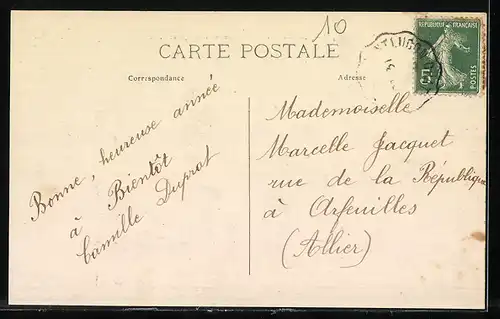 10
CARTE POSTALE
Correspondance
Adresse
REPUBLIQUE FRANÇAISE
POSTES
Bonne, heureuse année
à Bientôt
Camille Duprat
Mademoiselle
Marcelle Jacquet
rue de la République
à Arfeuilles
(Allier)